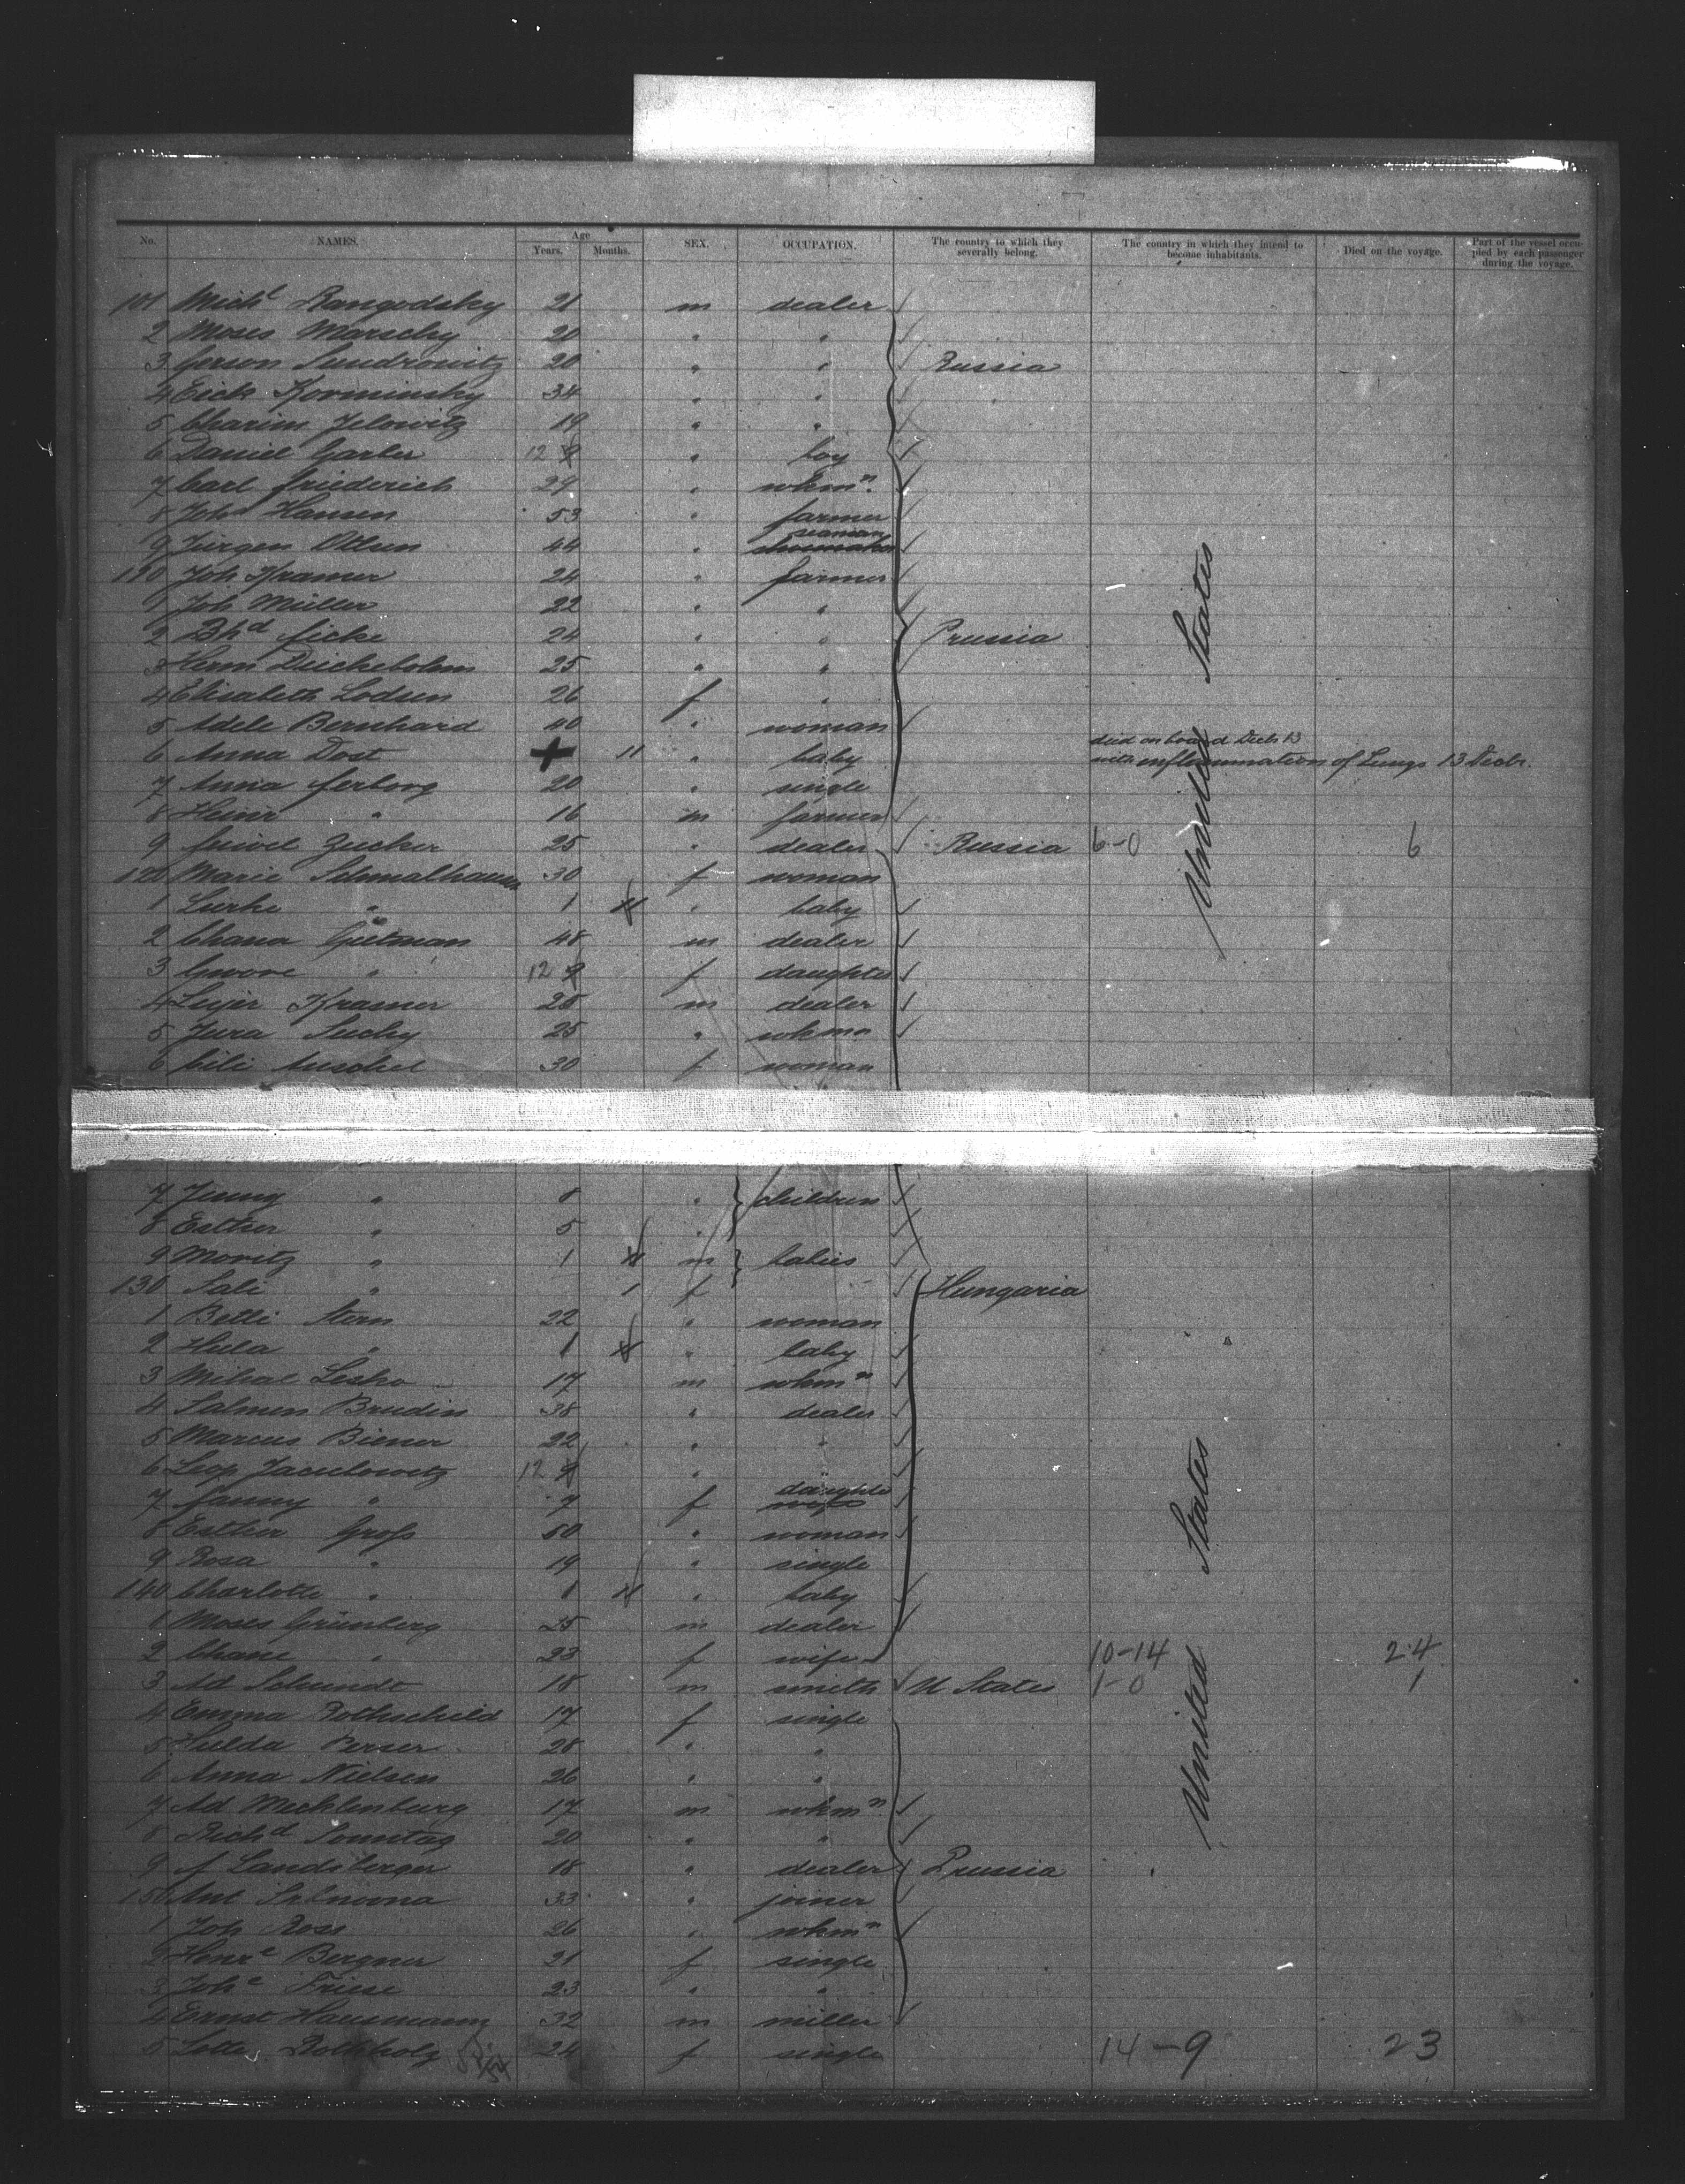 No. NAMES. Age Years. Months. SEX. OCCUPATION. The country to which they severally belong. The country in which they intend to become inhabitants. Died on the voyage. Part of the vessel occupied by each passenger during the voyage.
101 Michl Rangodsky 21 m dealer
2 Moses Marschy 20 " "
3 Gerson Sendrowitz 20 " " Russia
4 Eick Korminsky 34 " "
5 Charim Jelowitz 19 " "
6 Daniel Garber 12 9 " boy
7 Carl Friederich 29 " wkmn.
8 Johs Hansen 53 " farmer
9 Jürgen Ottsen 44 " seaman shoemaker
110 Joh Kramer 24 " farmer
1 Joh Müller 22 " "
2 Bhd Ficke 24 " " Prussia
3 Herm 25 " "
4 Elisabeth Lodsen 26 f "
5 Adele Bernhard 40 " woman
6 Anna Dost 11 " baby died on board Decb 13 with inflammation of Lungs 13 Decbr.
7 Anna Ferborg 20 " single
8 Heinr " 16 m farmer
9 Feiwel Zucker 25 " dealer Russia 6-0 6
120 Marie Schmalhausen 30 f woman
1 Lurke " 1 11 " baby
2 Chana Gutman 48 m dealer
3 " 12 9 f daughter
4 Leijer Kramer 25 m dealer
5 Jura Suchy 25 " wkmn
6 Cili Auschel 30 f woman
7 Jenny " 8 " children
8 Esther " 5 "
9 Moritz " 1 11 m babies
130 Sali " 1 f Hungaria
1 Betti Stern 22 " woman
2 " 1 " baby
3 Mihal Lesko 17 m wkmn
4 Salmen Brudin 38 " dealer
5 Marcus Biener 22 " "
6 Leop Jacubowitz 12 9 " "
7 Fanny " 7 f daughter wife
8 Esther Groß 50 " woman
9 Rosa " 19 " single
140 Charlotte " 1 11 " baby
1 Moses Grünberg 25 m dealer
2 Chane " 23 f wife 10-14 24
3 Ad Schundt 18 m smith U States 1-0 1
4 Emma Rothschild 17 f single
5 Hulda Perser 28 " "
6 Anna Nielsen 26 " "
7 Ad Mecklenburg 17 m wkmn
8 Richd Sonntag 20 " "
9 A Landsberger 18 " dealer Prussia
150 Ant 33 " joiner
1 Joh Ross 26 " wkmn
2 Henre Bergner 21 f single
3 Johe Friese 23 " "
4 Ernst Hausmann 32 m miller
5 Lotte Rothholz 24 f single 14-9 23
United States
United States